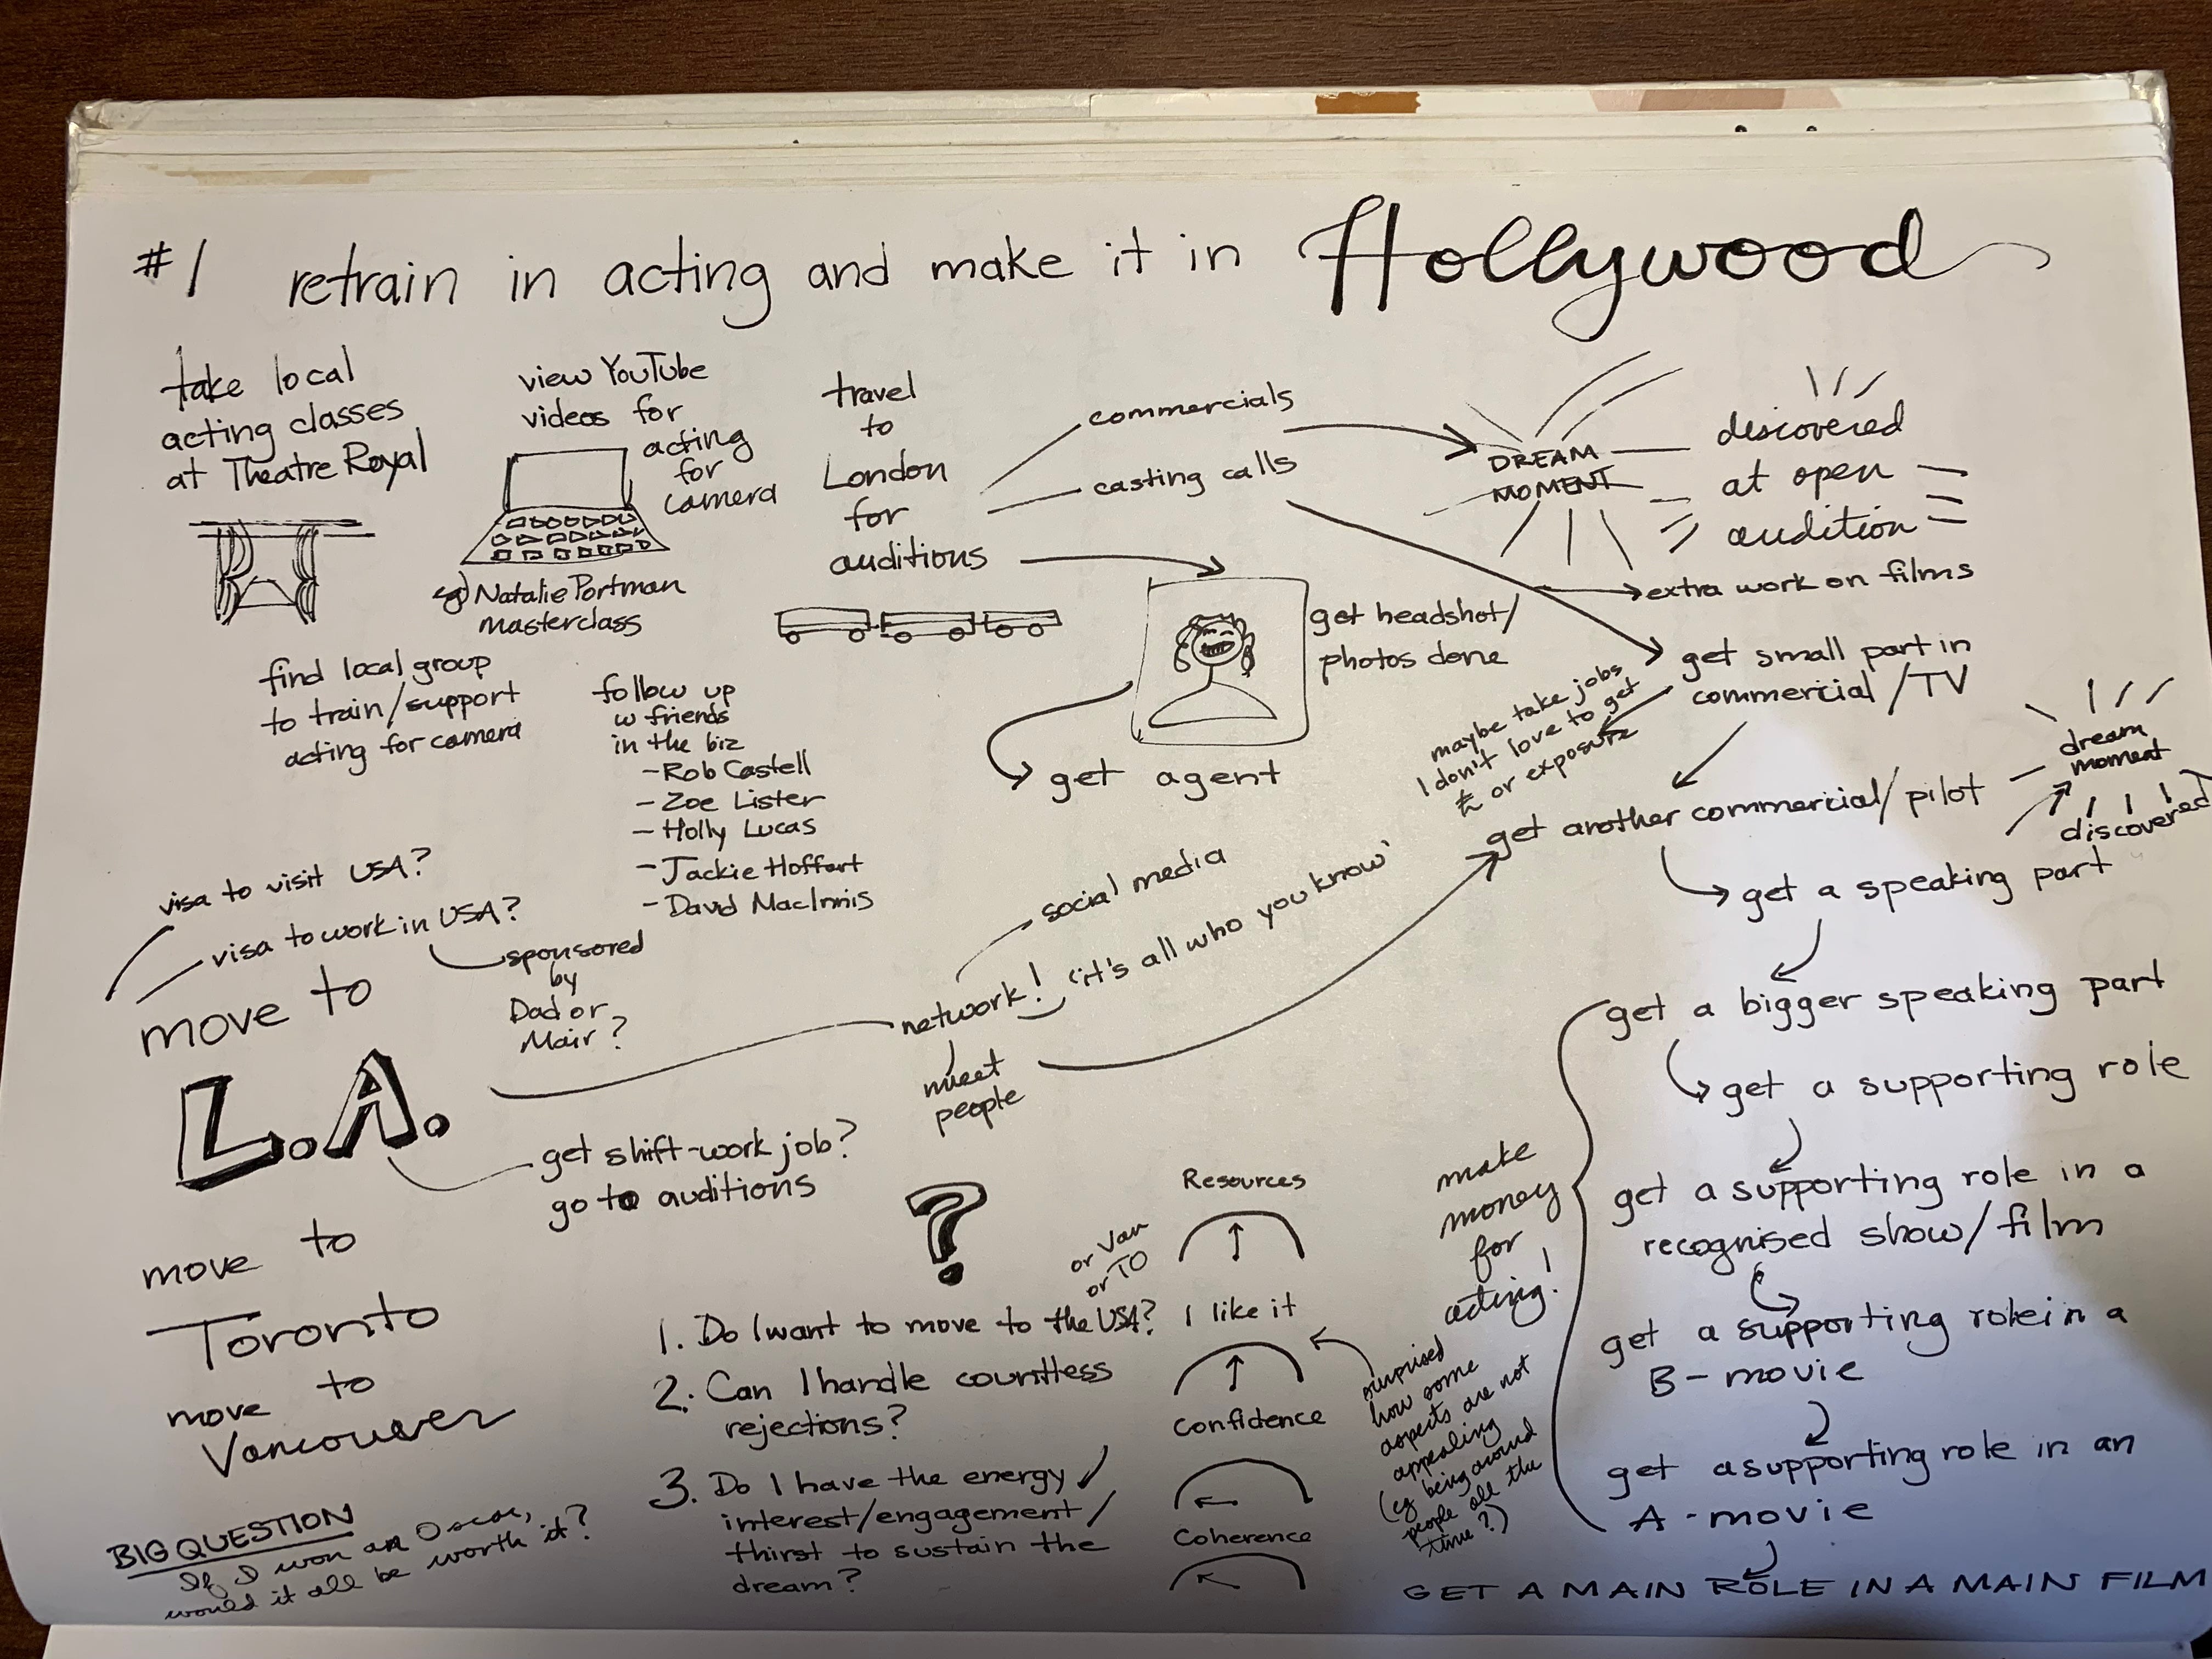 #1 retrain in acting and make it in Hollywood
take local
acting classes
at Theatre Royal
view YouTube
videos for
acting
for
camera
eg) Natalie Portman
masterclass
travel
to
London
for
auditions
commercials
casting calls
DREAM
MOMENT
discovered
at open
audition
extra work on films
get headshot/
photos done
get agent
get small part in
commercial/TV
maybe take jobs
I don't love to get
£ or exposure
find local group
to train/support
acting for camera
follow up
w friends
in the biz
- Rob Castell
- Zoe Lister
- Holly Lucas
- Jackie Hoffart
- David MacInnis
get another commercial/pilot
dream
moment
discovered
get a speaking part
get a bigger speaking part
get a supporting role
get a supporting role in a
recognised show/film
get a supporting role in a
B-movie
get a supporting role in an
A-movie
GET A MAIN ROLE IN A MAIN FILM
make
money
for
acting!
visa to visit USA?
visa to work in USA?
sponsored
by
Dad or
Mair?
move to
L.A.
network! "it's all who you know"
social media
meet
people
get shift-work job?
go to auditions
move to
Toronto
move to
Vancouver
BIG QUESTION
If I won an Oscar,
would it all be worth it?
?
or Van
or TO
1. Do I want to move to the USA?
2. Can I handle countless
rejections?
3. Do I have the energy
interest/engagement/
thirst to sustain the
dream?
Resources
I like it
Confidence
Coherence
surprised
how some
aspects are not
appealing
(eg being around
people all the
time?)